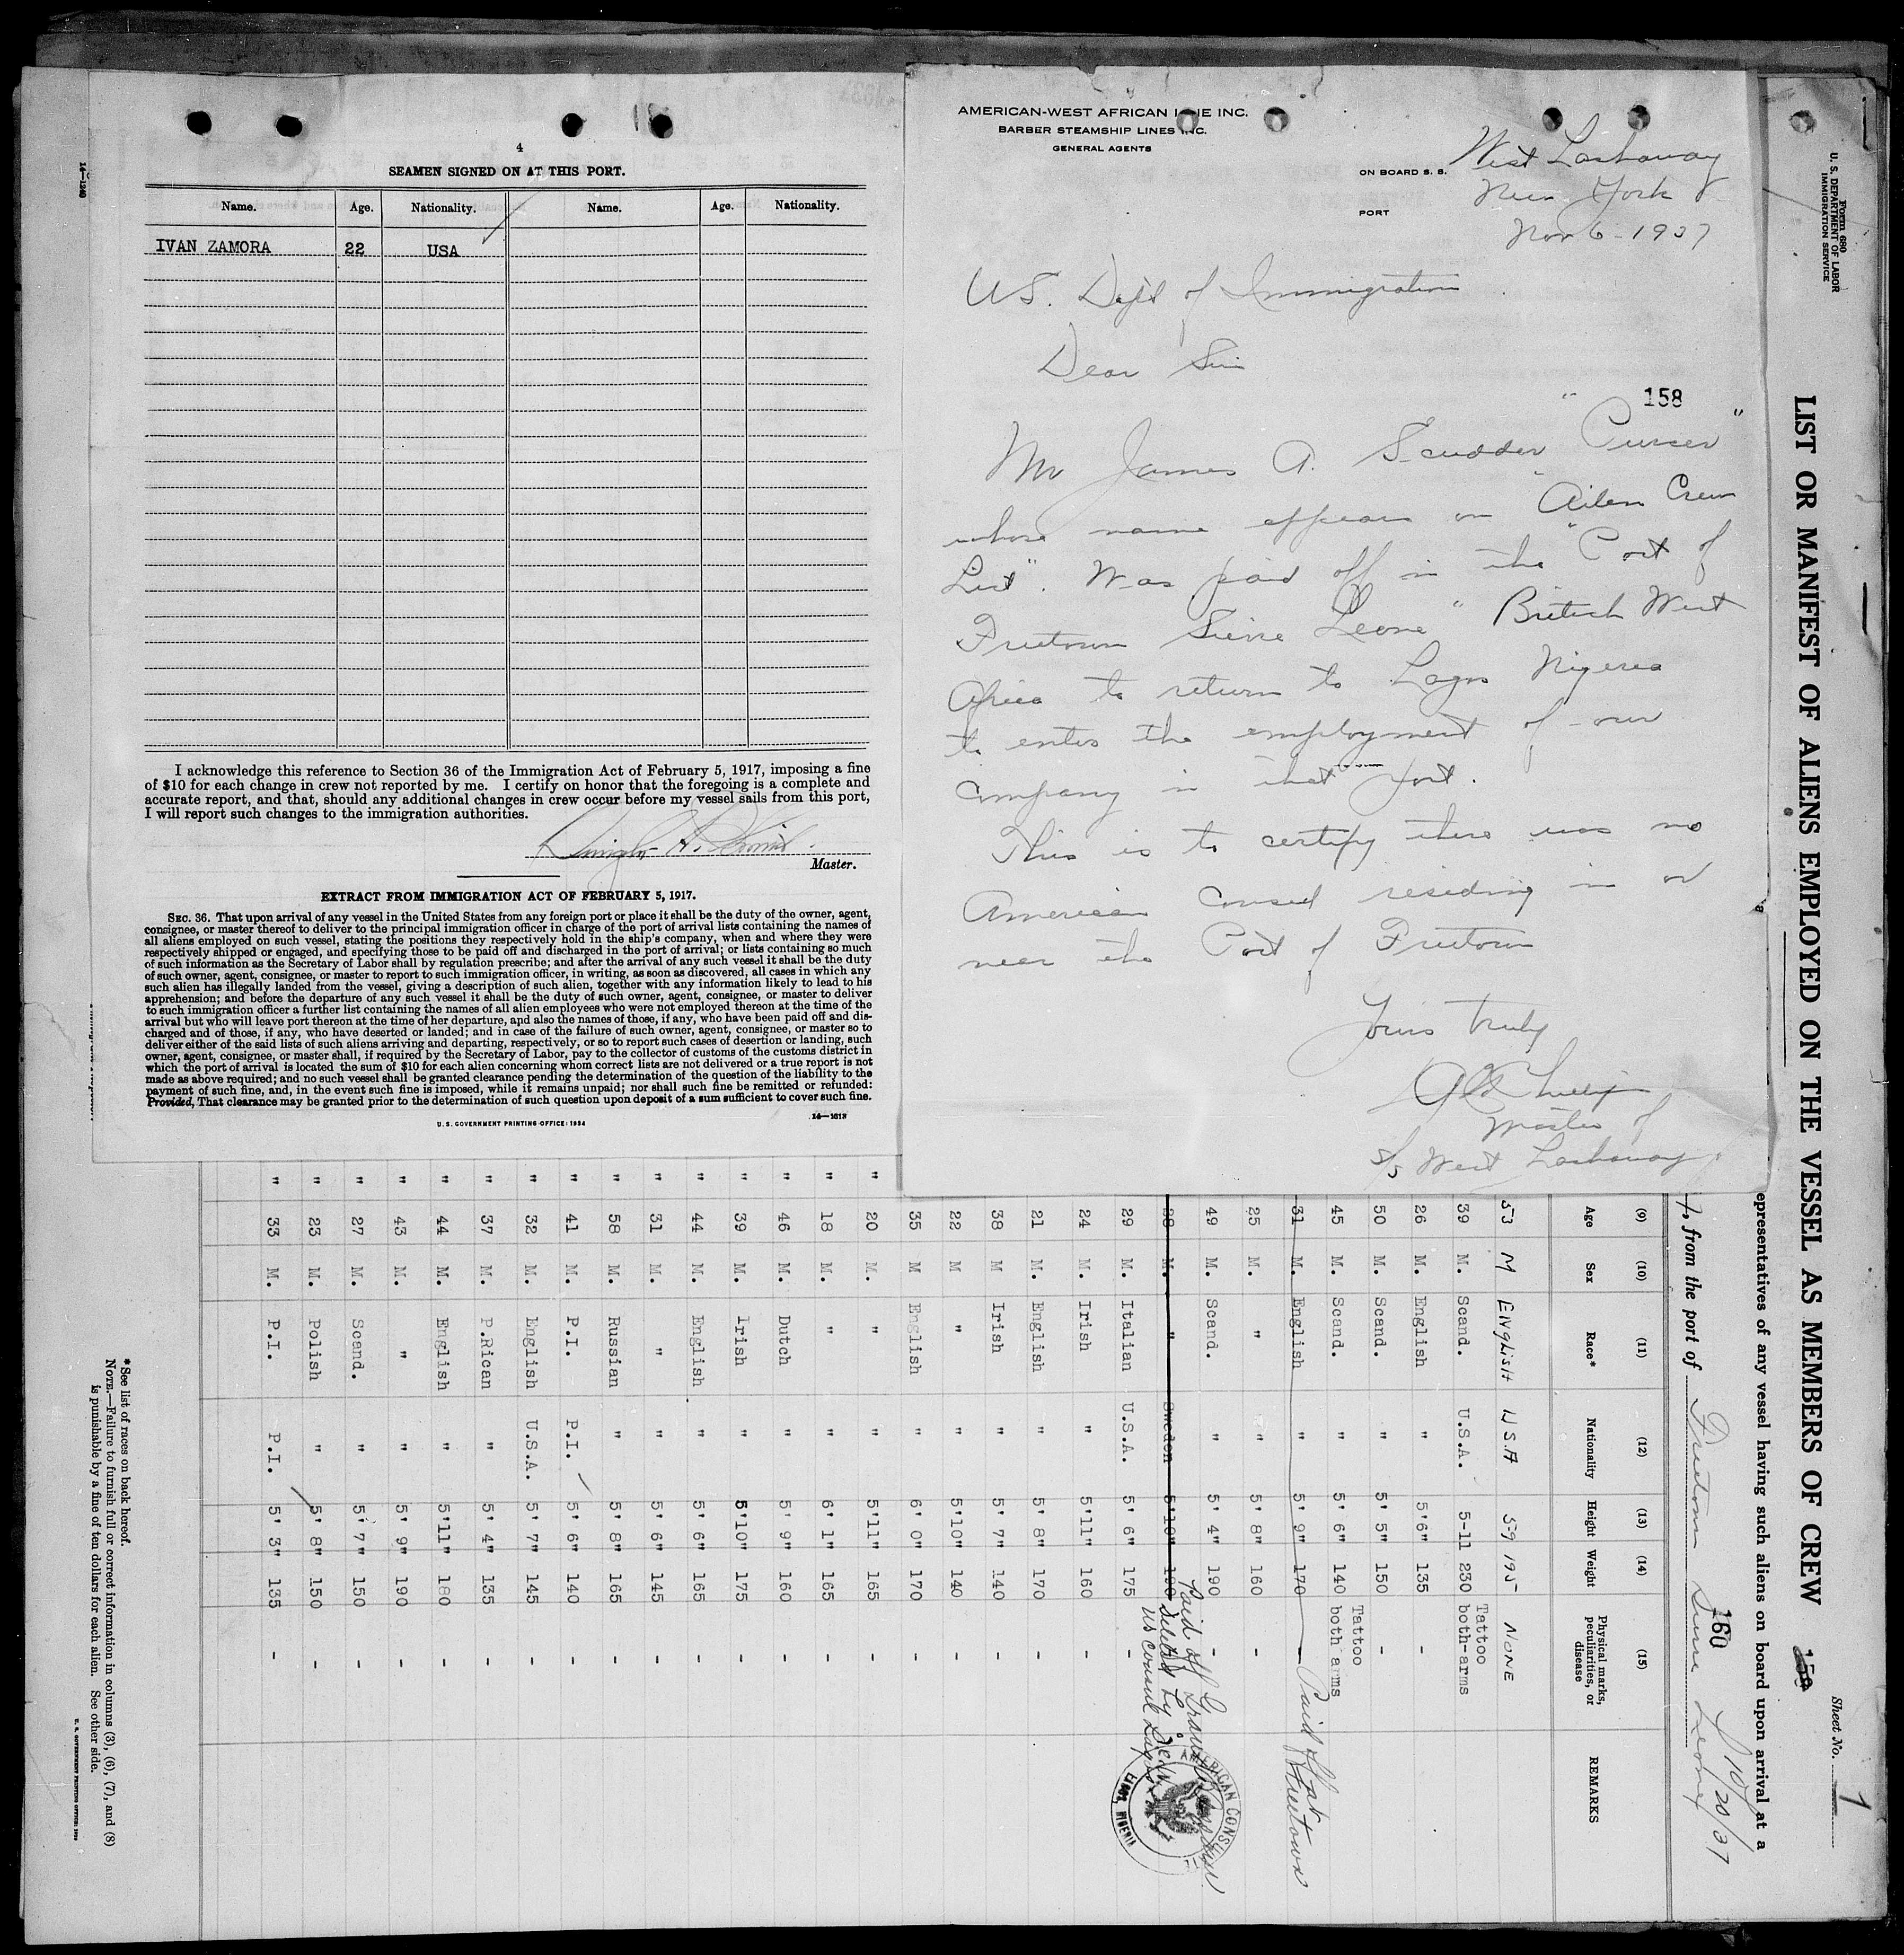 14—1240
4
SEAMEN SIGNED ON AT THIS PORT.
Name. Age. Nationality. Name. Age. Nationality.
IVAN ZAMORA 22 USA
I acknowledge this reference to Section 36 of the Immigration Act of February 5, 1917, imposing a fine
of $10 for each change in crew not reported by me. I certify on honor that the foregoing is a complete and
accurate report, and that, should any additional changes in crew occur before my vessel sails from this port,
I will report such changes to the immigration authorities.
Master.
EXTRACT FROM IMMIGRATION ACT OF FEBRUARY 5, 1917.
SEC. 36. That upon arrival of any vessel in the United States from any foreign port or place it shall be the duty of the owner, agent,
consignee, or master thereof to deliver to the principal immigration officer in charge of the port of arrival lists containing the names of
all aliens employed on such vessel, stating the positions they respectively hold in the ship's company, when and where they were
respectively shipped or engaged, and specifying those to be paid off and discharged in the port of arrival; or lists containing so much
of such information as the Secretary of Labor shall by regulation prescribe; and after the arrival of any such vessel it shall be the duty
of such owner, agent, consignee, or master to report to such immigration officer, in writing, as soon as discovered, all cases in which any
such alien has illegally landed from the vessel, giving a description of such alien, together with any information likely to lead to his
apprehension; and before the departure of any such vessel it shall be the duty of such owner, agent, consignee, or master to deliver
to such immigration officer a further list containing the names of all alien employees who were not employed thereon at the time of the
arrival but who will leave port thereon at the time of her departure, and also the names of those, if any, who have been paid off and dis-
charged and of those, if any, who have deserted or landed; and in case of the failure of such owner, agent, consignee, or master so to
deliver either of the said lists of such aliens arriving and departing, respectively, or so to report such cases of desertion or landing, such
owner, agent, consignee, or master shall, if required by the Secretary of Labor, pay to the collector of customs of the customs district in
which the port of arrival is located the sum of $10 for each alien concerning whom correct lists are not delivered or a true report is not
made as above required; and no such vessel shall be granted clearance pending the determination of the question of the liability to the
payment of such fine, and, in the event such fine is imposed, while it remains unpaid; nor shall such fine be remitted or refunded:
Provided, That clearance may be granted prior to the determination of such question upon deposit of a sum sufficient to cover such fine.
U. S. GOVERNMENT PRINTING OFFICE: 1934
AMERICAN-WEST AFRICAN LINE INC.
BARBER STEAMSHIP LINES INC.
GENERAL AGENTS
ON BOARD S. S. West Lashaway
PORT New York
Nov 6 - 1937
US. Dept of Immigration
Dear Sir
158
Mr James A. Scudder "Purser"
whose name appears on "Ailen Crew
List". Was paid off in the "Port of
Freetown Sierre Leone" British West
Africa to return to Lagos Nigeria
to enter the employment of our
company in that port.
This is to certify there was no
American Consul residing in or
near the Port of Freetown
Yours truly
Master of
S/S West Lashaway
Form 680
U. S. DEPARTMENT OF LABOR
IMMIGRATION SERVICE
Sheet No. 1
LIST OR MANIFEST OF ALIENS EMPLOYED ON THE VESSEL AS MEMBERS OF CREW 159
epresentatives of any vessel having such aliens on board upon arrival at a
160
from the port of Freetown Sierre Leone 10/20/37
(9) (10) (11) (12) (13) (14) (15)
Age Sex Race* Nationality Height Weight Physical marks, peculiarities, or disease REMARKS
53 M ENGLISH U.S.A 5-9 195 NONE
39 M. Scand. U.S.A. 5-11 230 Tattoo both-arms
26 M. English " 5'6" 135 -
50 M. Scand. " 5' 5" 150 -
45 M. Scand. " 5' 6" 140 Tattoo both arms
31 M. English " 5' 9" 170 - Paid off at Freetown
25 M. " " 5' 8" 160 -
49 M. Scand. " 5' 4" 190 -
28 M. " Sweden 5'10" 190 Paid off
US Consul Lagos
AMERICAN CONSUL
LAGOS, NIGERIA
29 M. Italian U.S.A. 5' 6" 175 -
24 M. Irish " 5'11" 160 -
21 M. English " 5' 8" 170 -
38 M Irish " 5' 7" 140 -
22 M " " 5'10" 140 -
35 M English " 6' 0" 170 -
" 20 M. " " 5'11" 165 -
" 18 M. " " 6' 1" 165 -
" 46 M. Dutch " 5' 9" 160 -
" 39 M. Irish " 5'10" 175 -
" 44 M. English " 5' 6" 165 -
" 31 M. " " 5' 6" 145 -
" 58 M. Russian " 5' 8" 165 -
" 41 M. P.I. P.I. 5' 6" 140 -
" 32 M. English U.S.A. 5' 7" 145 -
" 37 M. P.Rican " 5' 4" 135 -
" 44 M. English " 5'11" 180 -
" 43 M. " " 5' 9" 190 -
" 27 M. Scand. " 5' 7" 150 -
" 23 M. Polish " 5' 8" 150 -
" 33 M. P.I. P.I. 5' 3" 135 -
*See list of races on back hereof.
NOTE.—Failure to furnish full or correct information in columns (3), (6), (7), and (8)
is punishable by a fine of ten dollars for each alien. See other side.